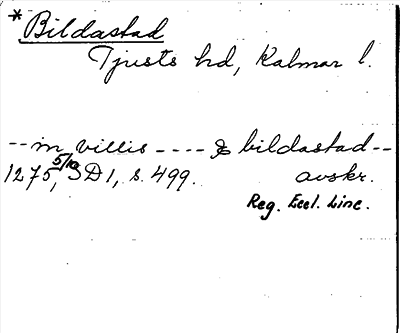 * Bildastad
Tjusts hd, Kalmar l.
-- in villis ---- & bildastad --
1275 5/10, SD 1, s. 499. avskr.
Reg. Eccl. Linc.